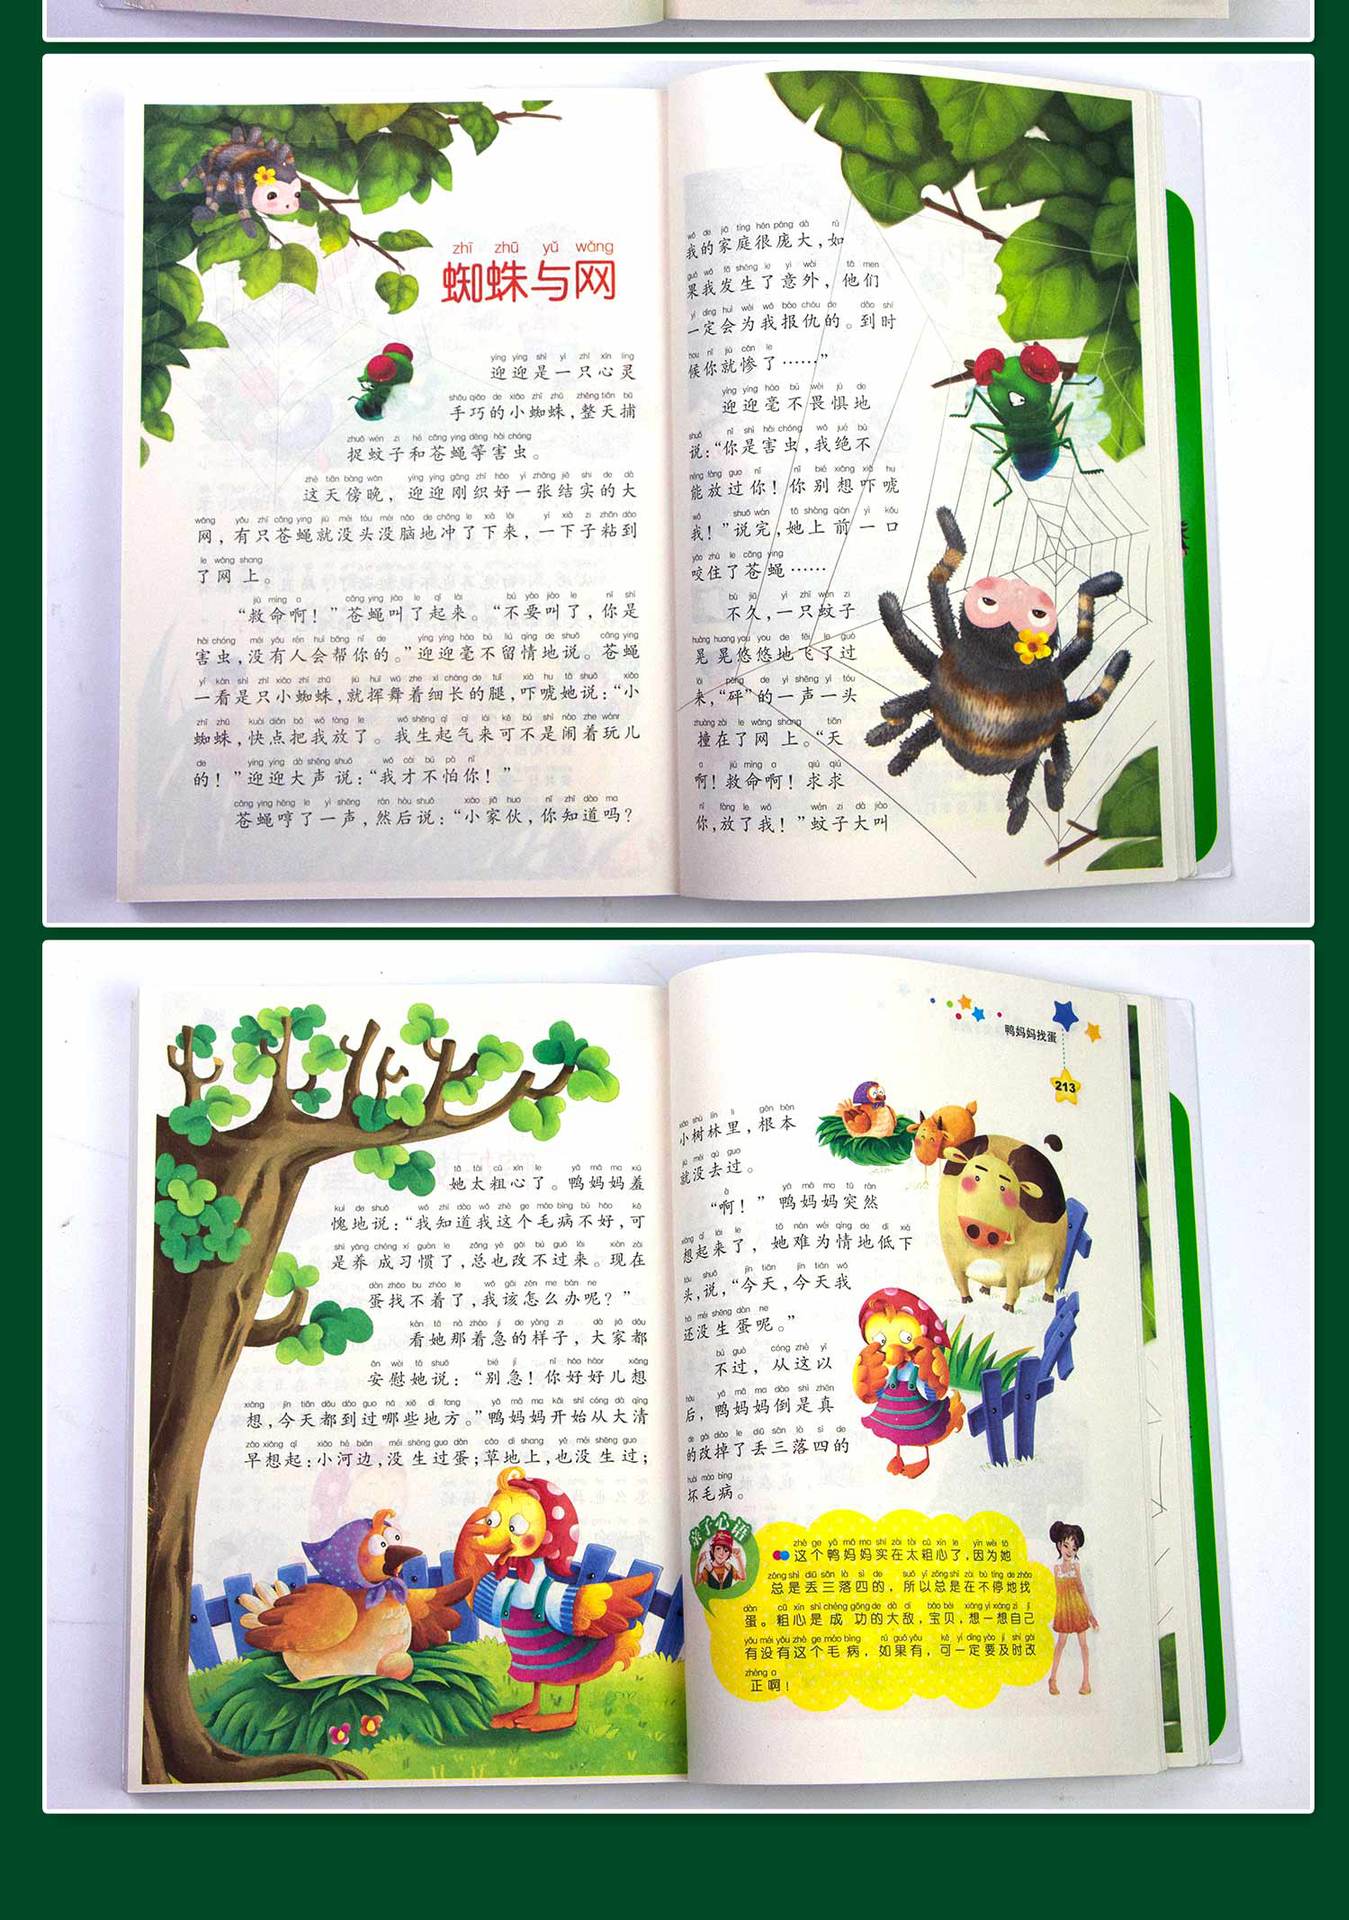 zhī zhū yǔ wǎng
蜘蛛与网
迎迎是一只心灵
手巧的小蜘蛛,整天捕
捉蚊子和苍蝇等害虫。
这天傍晚, 迎迎刚织好一张结实的大
网, 有只苍蝇就没头没脑地冲了下来, 一下子粘到
了网上。
“救命啊! ”苍蝇叫了起来。“不要叫了, 你是
害虫, 没有人会帮你的。”迎迎毫不留情地说。苍蝇
一看是只小蜘蛛, 就挥舞着细长的腿, 吓唬她说: “小
蜘蛛, 快点把我放了。我生起气来可不是闹着玩儿
的! ”迎迎大声说: “我才不怕你! ”
苍蝇哼了一声, 然后说: “小家伙, 你知道吗?
我的家庭很庞大, 如
果我发生了意外, 他们
一定会为我报仇的。到时
候你就惨了……”
迎迎毫不畏惧地
说: “你是害虫, 我绝不
能放过你! 你别想吓唬
我! ”说完, 她上前一口
咬住了苍蝇……
不久, 一只蚊子
晃晃悠悠地飞了过
来, “砰”的一声一头
撞在了网上。“天
啊! 救命啊! 求求
你, 放了我! ”蚊子大叫
她太粗心了。鸭妈妈羞
愧地说: “我知道我这个毛病不好, 可
是养成习惯了, 总也改不过来。现在
蛋找不着了, 我该怎么办呢? ”
看她那着急的样子, 大家都
安慰她说: “别急! 你好好儿想
想, 今天都到过哪些地方。”鸭妈妈开始从大清
早想起: 小河边, 没生过蛋; 草地上, 也没生过;
鸭妈妈找蛋
213
小树林里, 根本
就没去过。
“啊! ” 鸭妈妈突然
想起来了, 她难为情地低下
头, 说, “今天, 今天我
还没生蛋呢。”
不过, 从这以
后, 鸭妈妈倒是真
的改掉了丢三落四的
坏毛病。
亲子心语
这个鸭妈妈实在太粗心了, 因为她
总是丢三落四的, 所以总是在不停地找
蛋。粗心是成功的大敌, 宝贝, 想一想自己
有没有这个毛病, 如果有, 可一定要及时改
正啊!